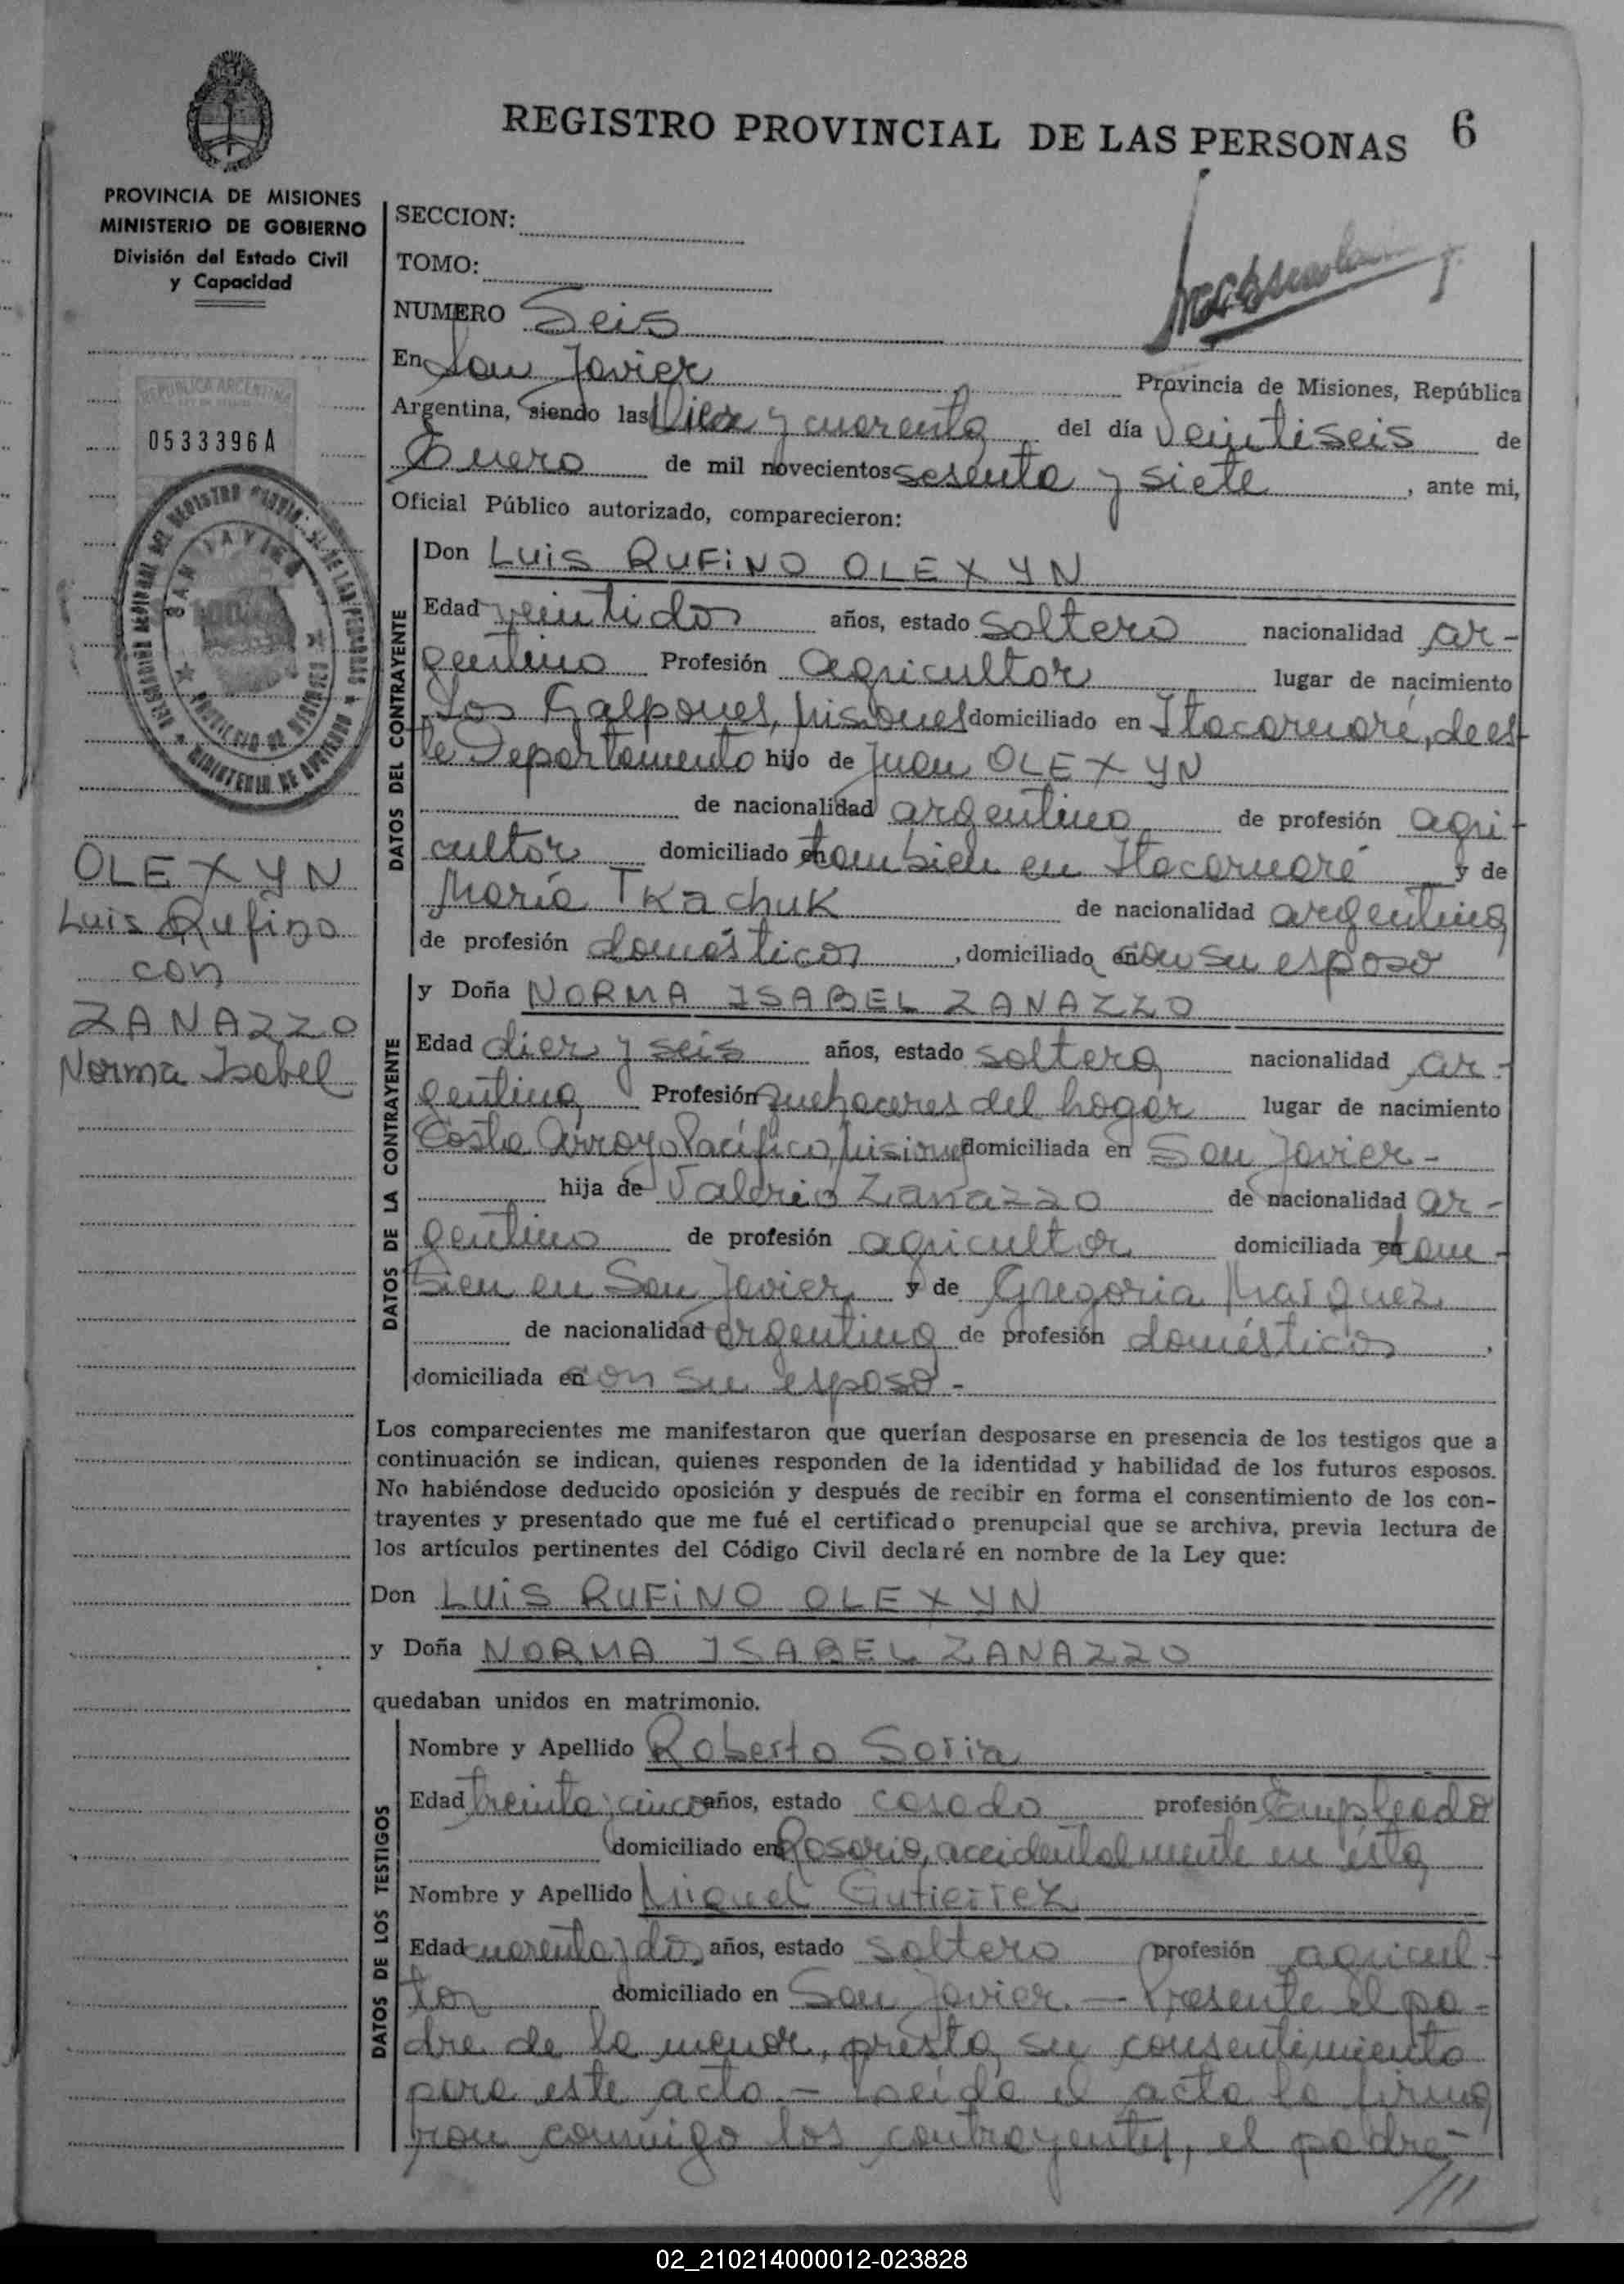 REGISTRO PROVINCIAL DE LAS PERSONAS 6
PROVINCIA DE MISIONES
MINISTERIO DE GOBIERNO
División del Estado Civil
y Capacidad
REPUBLICA ARGENTINA
0533396A
SAN JAVIER
PROVINCIA DE MISIONES
OLEXYN
Luis Rufino
con
ZANAZZO
Norma Isabel
SECCION:
TOMO:
NUMERO Seis
En San Javier Provincia de Misiones, República
Argentina, siendo las Diez y cuarenta del día Veintiseis de
Enero de mil novecientos sesenta y siete, ante mi,
Oficial Público autorizado, comparecieron:
DATOS DEL CONTRAYENTE
Don LUIS RUFINO OLEXYN
Edad veintidos años, estado soltero nacionalidad ar-
gentino Profesión agricultor lugar de nacimiento
Los Galpones, Misiones domiciliado en Itacaruaré, de es-
te Departamento hijo de Juan OLEXYN
de nacionalidad argentino de profesión agri-
cultor domiciliado en tambien en Itacaruaré y de
María Tkachuk de nacionalidad argentina
de profesión domésticos, domiciliado en con su esposo
DATOS DE LA CONTRAYENTE
y Doña NORMA ISABEL ZANAZZO
Edad diez y seis años, estado soltera nacionalidad ar-
gentina Profesión quehaceres del hogar lugar de nacimiento
Costa Arroyo Pacífico, Misiones domiciliada en San Javier-
hija de Valerio Zanazzo de nacionalidad ar-
gentino de profesión agricultor domiciliada en tam-
bien en San Javier y de Gregoria Marquez
de nacionalidad argentina de profesión domésticos,
domiciliada en con su esposo.-
Los comparecientes me manifestaron que querían desposarse en presencia de los testigos que a
continuación se indican, quienes responden de la identidad y habilidad de los futuros esposos.
No habiéndose deducido oposición y después de recibir en forma el consentimiento de los con-
trayentes y presentado que me fué el certificado prenupcial que se archiva, previa lectura de
los artículos pertinentes del Código Civil declaré en nombre de la Ley que:
Don LUIS RUFINO OLEXYN
y Doña NORMA ISABEL ZANAZZO
quedaban unidos en matrimonio.
DATOS DE LOS TESTIGOS
Nombre y Apellido Roberto Soria
Edad treinta y cinco años, estado casado profesión Empleado
domiciliado en Rosario, accidentalmente en ésta
Nombre y Apellido Miguel Gutierrez
Edad cuarenta y dos años, estado soltero profesión agricul-
tor domiciliado en San Javier.— Presente el pa-
dre de la menor, presta su consentimiento
para este acto.— Leída el acta la firma
ron conmigo los contrayentes, el padre-
///
02_210214000012-023828